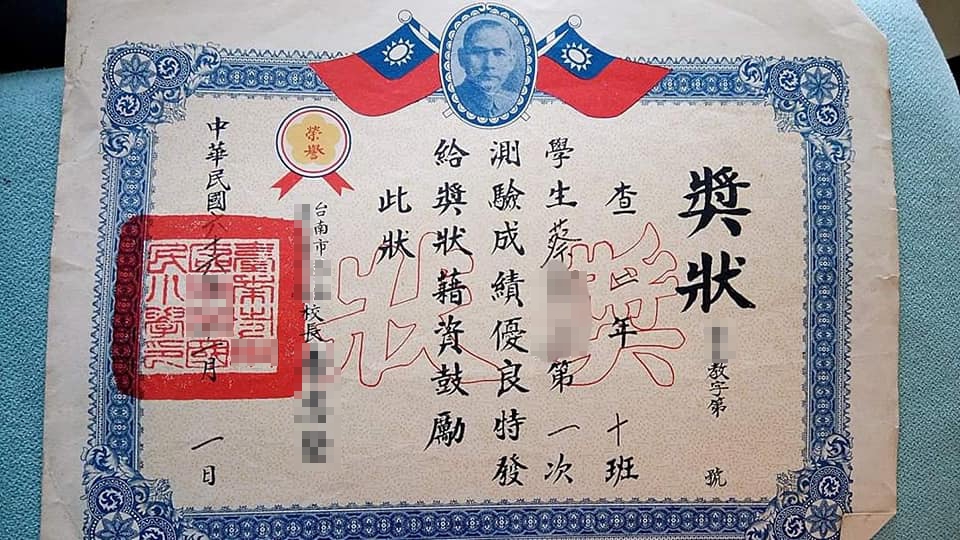 獎狀
教字第 號
查二年十班
學生蔡 第一次
測驗成績優良特發
給獎狀藉資鼓勵
此狀
獎狀
台南市
校長
榮譽
中華民國六十 月一日
臺南市
民小學印